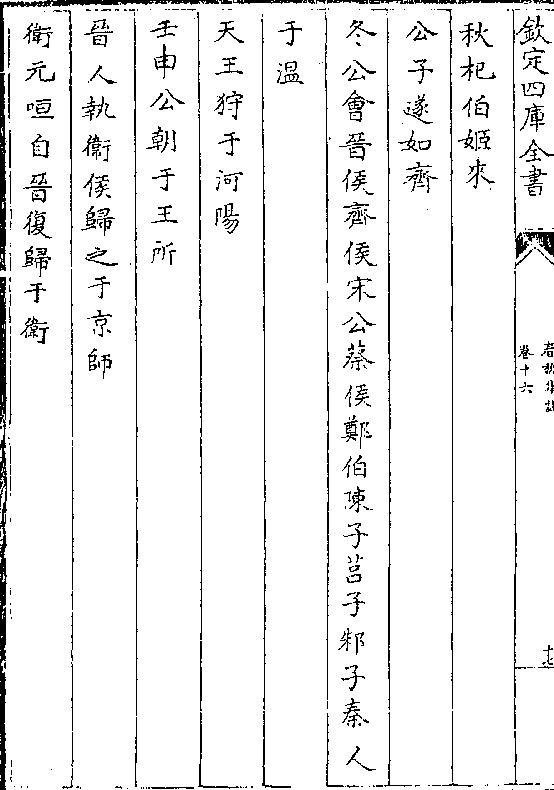 欽定四庫全書
卷十六
秋杞伯姬來
公子遂如齊
冬公會晉侯齊侯宋公蔡侯鄭伯陳子莒子邾子秦人
于溫
天王狩于河陽
壬申公朝于王所
晉人執衛侯歸之于京師
衛元咺自晉復歸于衛